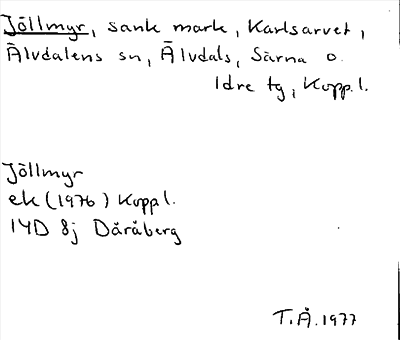 Jöllmyr, sank mark, Karlsarvet,
Älvdalens sn, Älvdals, Särna o.
Idre tg, Kopp.l.
Jöllmyr
ek (1976) Koppl.
14D 8j Däråberg
T.Å. 1977